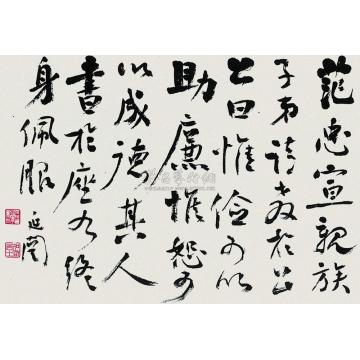 范忠宣親族
子弟請教於公
公曰惟儉可以
助廉惟恕可
以成德其人
書於座右終
身佩服 延闓